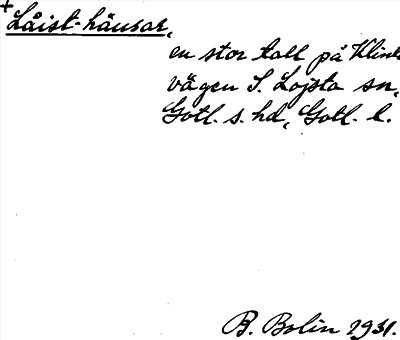 +Låist-häusar,
en stor tall på Klinte
vägen S. Lojsta sn,
Gotl. s. hd, Gotl. l.
B. Bolin 1931.